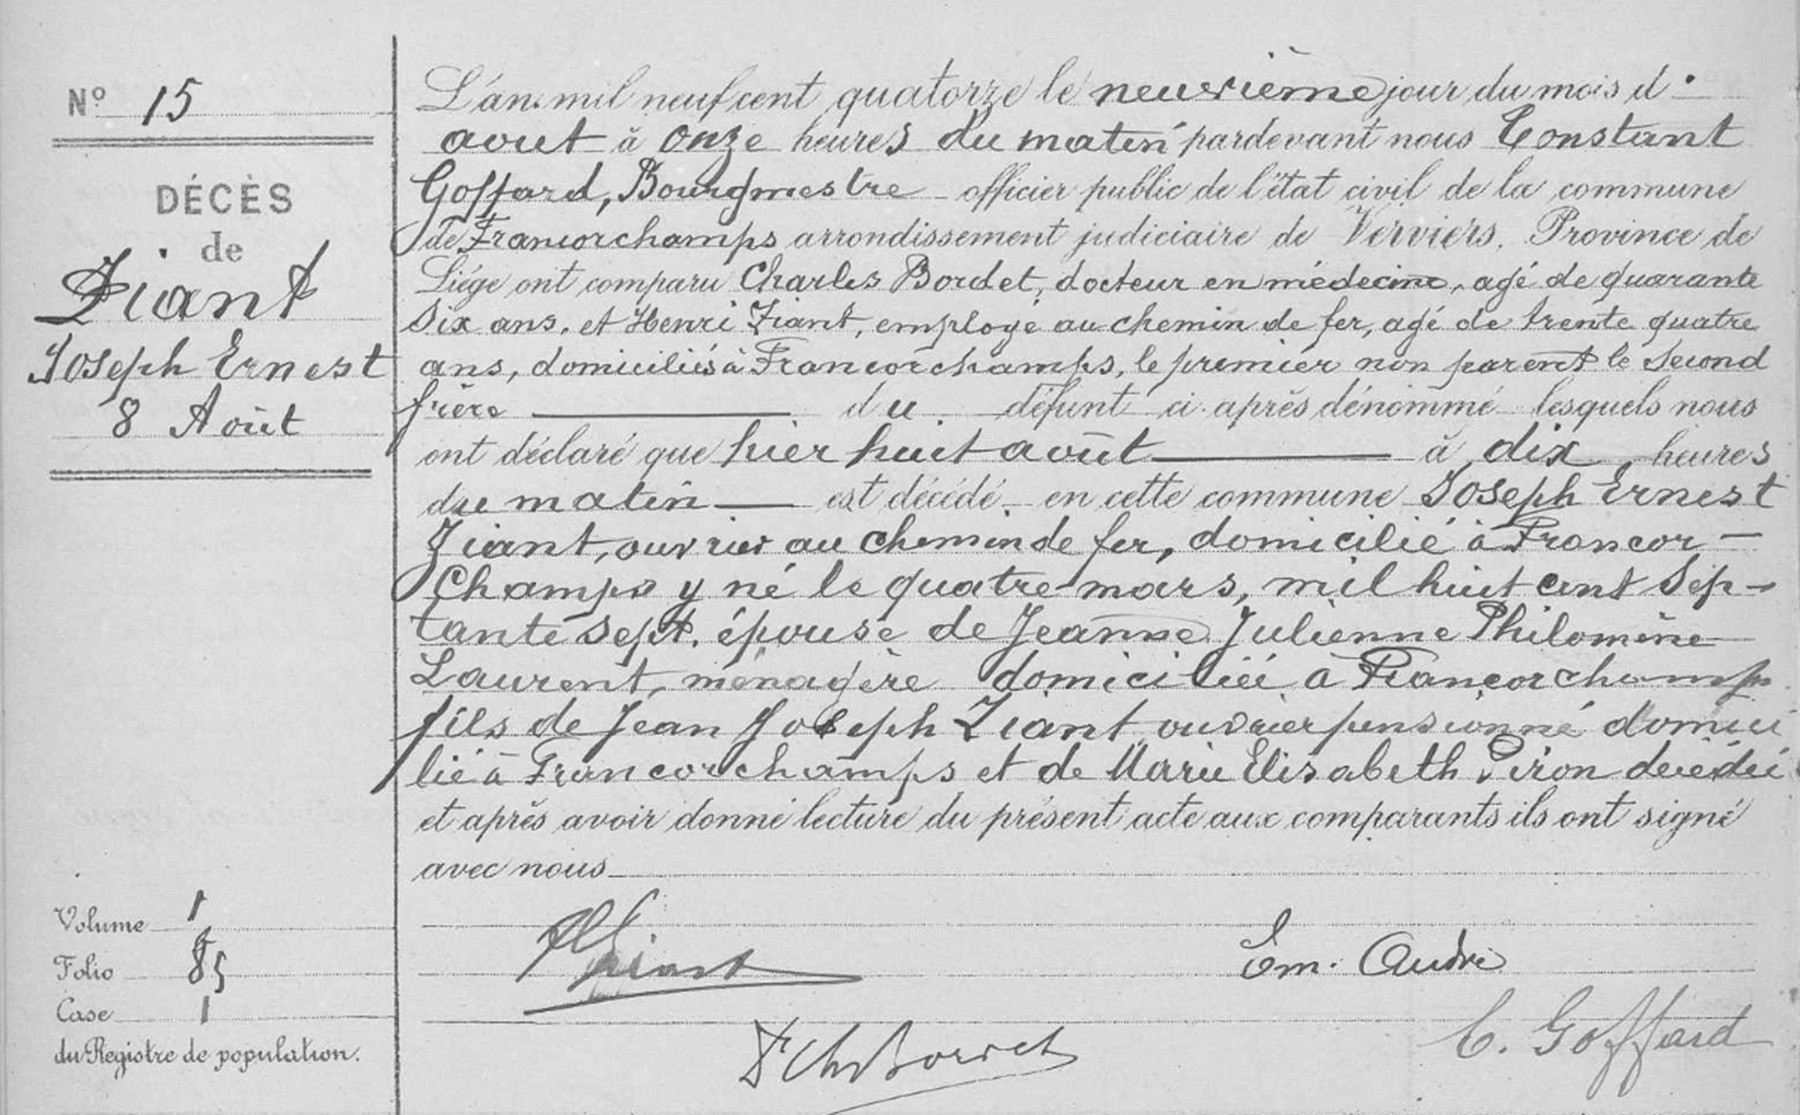 N° 15
DÉCÈS
de
Ziant
Joseph Ernest
8 Août
L'an mil neuf cent quatorze le neuvième jour du mois d'
aout à onze heures du matin pardevant nous Constant
Goffard, Bourgmestre officier public de l'état civil de la commune
de Francorchamps arrondissement judiciaire de Verviers, Province de
Liége ont comparu Charles Bordet, docteur en médecine, agé de quarante
six ans, et Henri Ziant, employé au chemin de fer, agé de trente quatre
ans, domiciliés à Francorchamps, le premier non parent le second
frère du défunt ci-après dénommé lesquels nous
ont déclaré que hier huit août à dix heures
du matin est décédé en cette commune Joseph Ernest
Ziant, ouvrier au chemin de fer, domicilié à Francor-
champs y né le quatre mars, mil huit cent sep-
tante sept, épouse de Jeanne Julienne Philomène
Laurent, ménagère domiciliée à Francorchamps
fils de Jean Joseph Ziant ouvrier pensionné domici
lié à Francorchamps et de Marie Elisabeth Piron décédée
et après avoir donné lecture du présent acte aux comparants ils ont signé
avec nous
Ziant
Em. André
C. Goffard
Dr Ch Bordet
Volume 1
Folio 85
Case 1
du Registre de population.